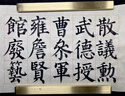 散議勲
武德授
曹叅軍
雍詹賢
館廢藝